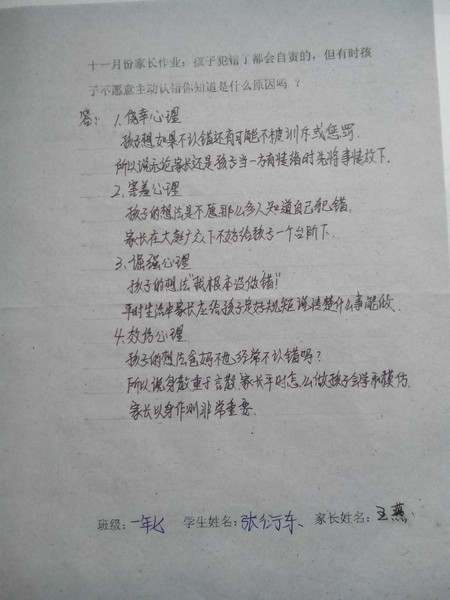 十一月份家长作业：孩子犯错了都会自责的，但有时孩
子不愿意主动认错你知道是什么原因吗？
答：1.侥幸心理
孩子想如果不认错还有可能不被训斥或惩罚.
所以说无论家长还是孩子当一方有情绪时先将事情放下.
2.害羞心理
孩子的想法是不愿那么多人知道自己犯错.
家长在大庭广众下不妨给孩子一个台阶下.
3.倔强心理
孩子的想法“我根本没做错!”
平时生活中家长应给孩子定好规矩说清楚什么事能做.
4.效仿心理
孩子的想法爸妈不也经常不认错吗?
所以说身教重于言教,家长平时怎么做孩子会学和模仿.
家长以身作则非常重要.
班级：一年 学生姓名：张行东、 家长姓名：王燕.